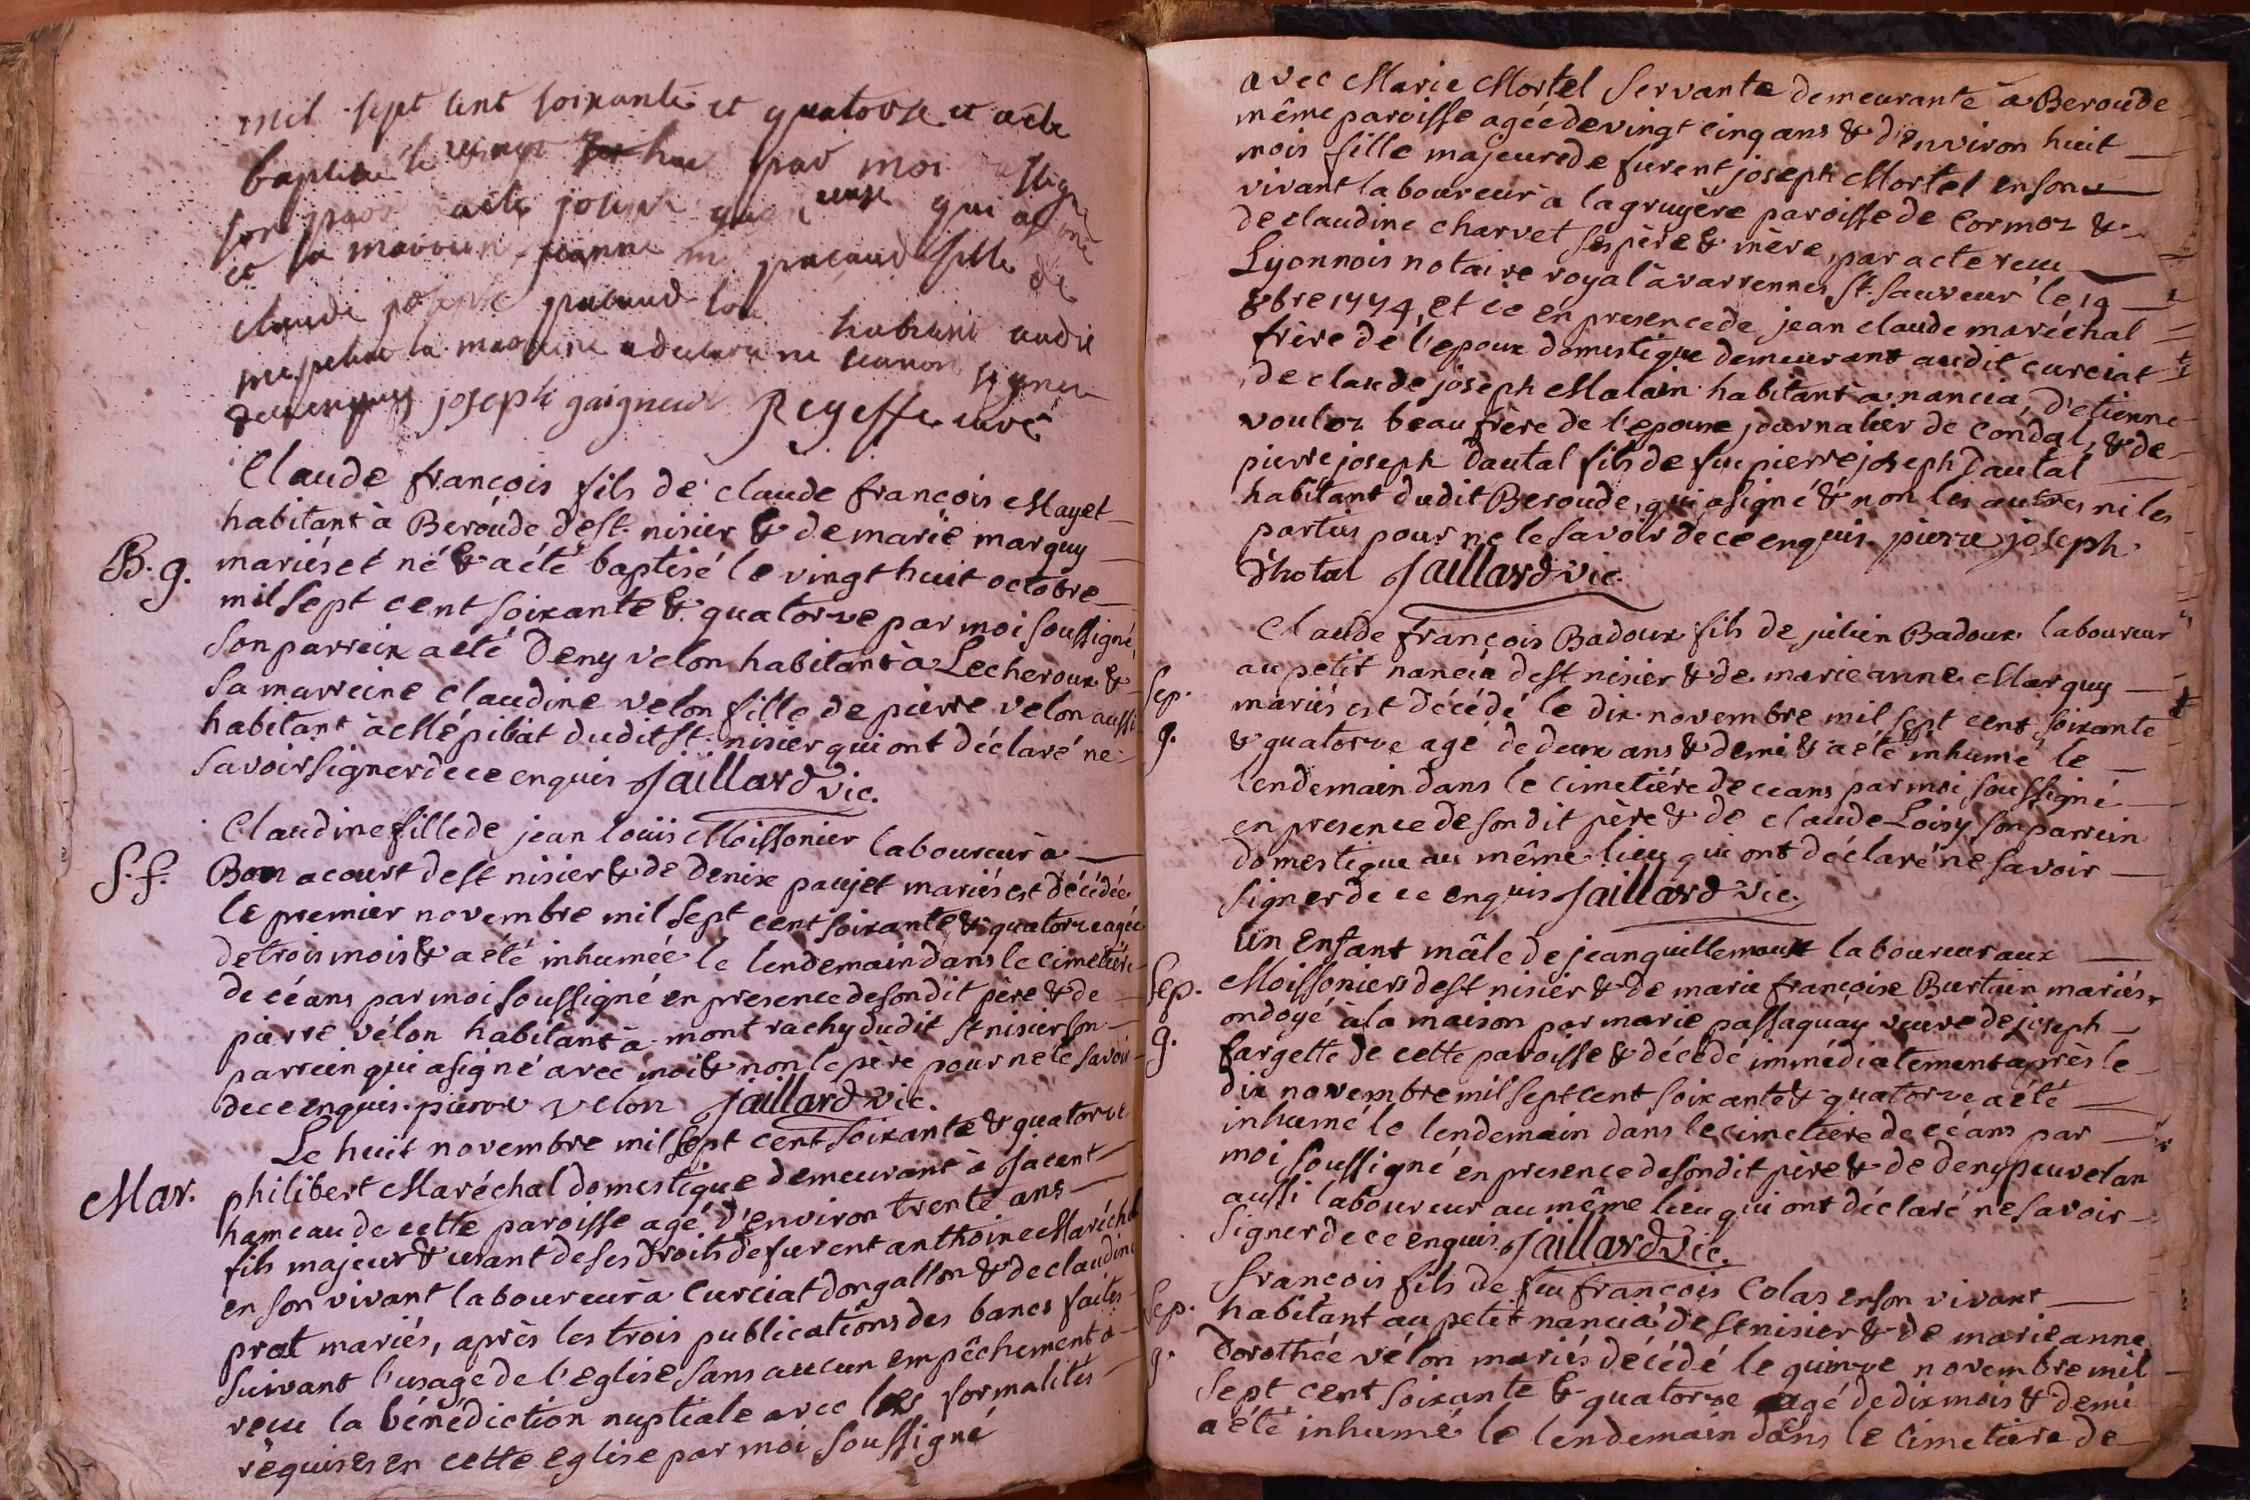 mil sept cent soixante et quatorse et a ete
baptise le vingt huit par moi soussigné
son parr a ete joseph gaigneur qui a signé
et sa marreine jeanne m pacaud fille de
claude joseph pacaud lou habitant audit
mepeliat la marreine a declare ne scavoir signer
de ce enquis joseph gaigneur Reyeffe curé
Claude françois fils de claude françois Mayet
habitant à Beroude de st. nisier & de marie marquy
B. g.
mariés et né & a été baptisé le vingt huit octobre
mil sept cent soixante & quatorze par moi soussigné,
son parrein a été Deny velon habitant à Lecheroux &
sa marreine claudine velon fille de pierre velon aussi
habitant à Mépiliat dudit st. nisier qui ont déclaré ne
savoir signer de ce enquis Jaillard vic.
Claudine fille de jean louïs Moissonier laboureur à
S. f.
Bon acourt de st nisier & de Denise paujet mariés est décédée
le premier novembre mil sept cent soixante & quatorze agée
de trois mois & a été inhumée le lendemain dans le cimetière
de céans par moi soussigné en presence de son dit père & de
pierre vélon habitant à mont rachy dudit st nisier son
parrein qui a signé avec moi & non le père pour ne le savoir
de ce enquis. pierre velon Jaillard vic.
Le huit novembre mil sept cent soixante & quatorze
Mar.
philibert Maréchal domestique demeurant à Jacent
hameau de cette paroisse agé d'environ trente ans
fils majeur & usant de ses droits de furent anthoine Maréchal
en son vivant laboureur à Curciat dongallon & de claudine
prat mariés, après les trois publications des bancs faites
suivant l'usage de l'eglise sans aucun empêchement a
recu la bénédiction nuptiale avec les formalités
réquises en cette eglise par moi soussigné
avec Marie Mortel servante demeurante à Beroude
même paroisse agée de vingt cinq ans & d'environ huit
mois fille majeure de furent joseph Mortel en son
vivant laboureur à la gruyère paroisse de Cormoz &
de claudine charvet ses père & mère, par acte recu
Lyonnois notaire royal à varrennes st. sauveur le 19
8bre 1774, et ce en presence de jean claude maréchal
frère de l'epoux domestique demeurant audit curciat
de claude joseph Malain habitant à nancia, d'etienne
vouloz beau frère de l'epouse journalier de Condal, & de
pierre joseph Dautal fils de feu pierre joseph Dautal
habitant dudit Beroude, qui a signé & non les autres ni les
parties pour ne le savoir de ce enquis. pierre joseph
d'hotal Jaillard vic.
Claude françois Badoux fils de julien Badoux laboureur
au petit nancia de st nisier & de marie anne Marquy
Sep.
mariés est décédé le dix novembre mil sept cent soixante
g.
& quatorze agé de deux ans & demi & a été inhumé le
lendemain dans le cimetiére de ceans par moi soussigné
en presence de son dit père & de claude Loisy son parrein
domestique au même lieu qui ont déclaré ne savoir
signer de ce enquis Jaillard vic.
Un Enfant mâle de jean guillemaut laboureur aux
Sep.
Moissoniers de st nisier & de marie françoise Burtain mariés,
ondoyé à la maison par marie passaquay veuve de joseph
g.
fargette de cette paroisse & décédé immédiatement après le
dix novembre mil sept cent soixante & quatorze a été
inhumé le lendemain dans le cimetiere de céans par
moi soussigné en presence de son dit père & de deny peuvelan
aussi laboureur au même lieu qui ont déclaré ne savoir
signer de ce enquis. Jaillard vic.
françois fils de feu françois Colas en son vivant
Sep.
habitant au petit nancia de st nisier & de marie anne
g.
Dorothée vélon mariés décédé le quinze novembre mil
sept cent soixante & quatorze agé de dix mois & demi
a été inhumé le lendemain dans le cimetiere de